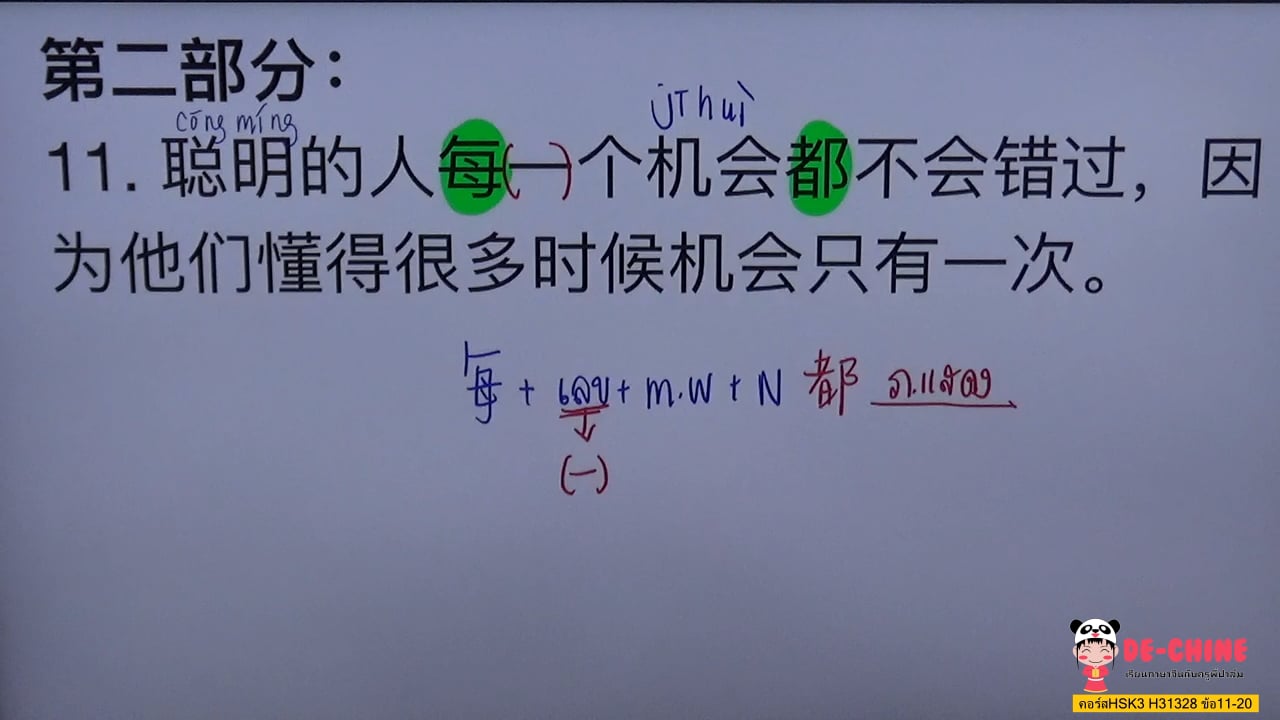 第二部分：
cōng míng
jī huì
11. 聪明的人每(一)个机会都不会错过，因
为他们懂得很多时候机会只有一次。
每 + เลข + m.w + N 都 ภ.แสดง
(一)
DE-CHINE
เรียนภาษาจีนกับครูพี่ป๋าส้ม
คอร์สHSK3 H31328 ข้อ11-20